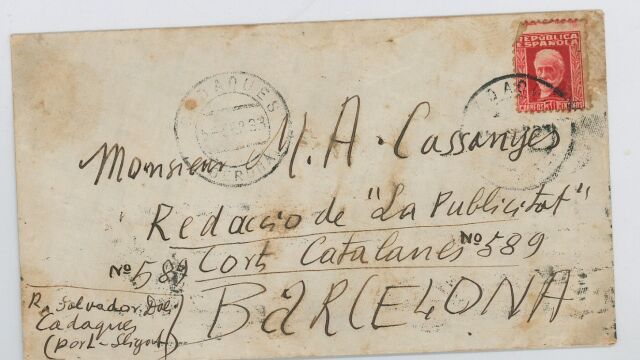 REPÚBLICA
ESPAÑOLA
CADAQUES
Monsieur M. A. Cassanyes
Redacció de "La Publicitat"
Nº 589 Corts Catalanes Nº 589
BARCELONA
R. Salvador Dalí
Cadaqués
(Port-Lligat)